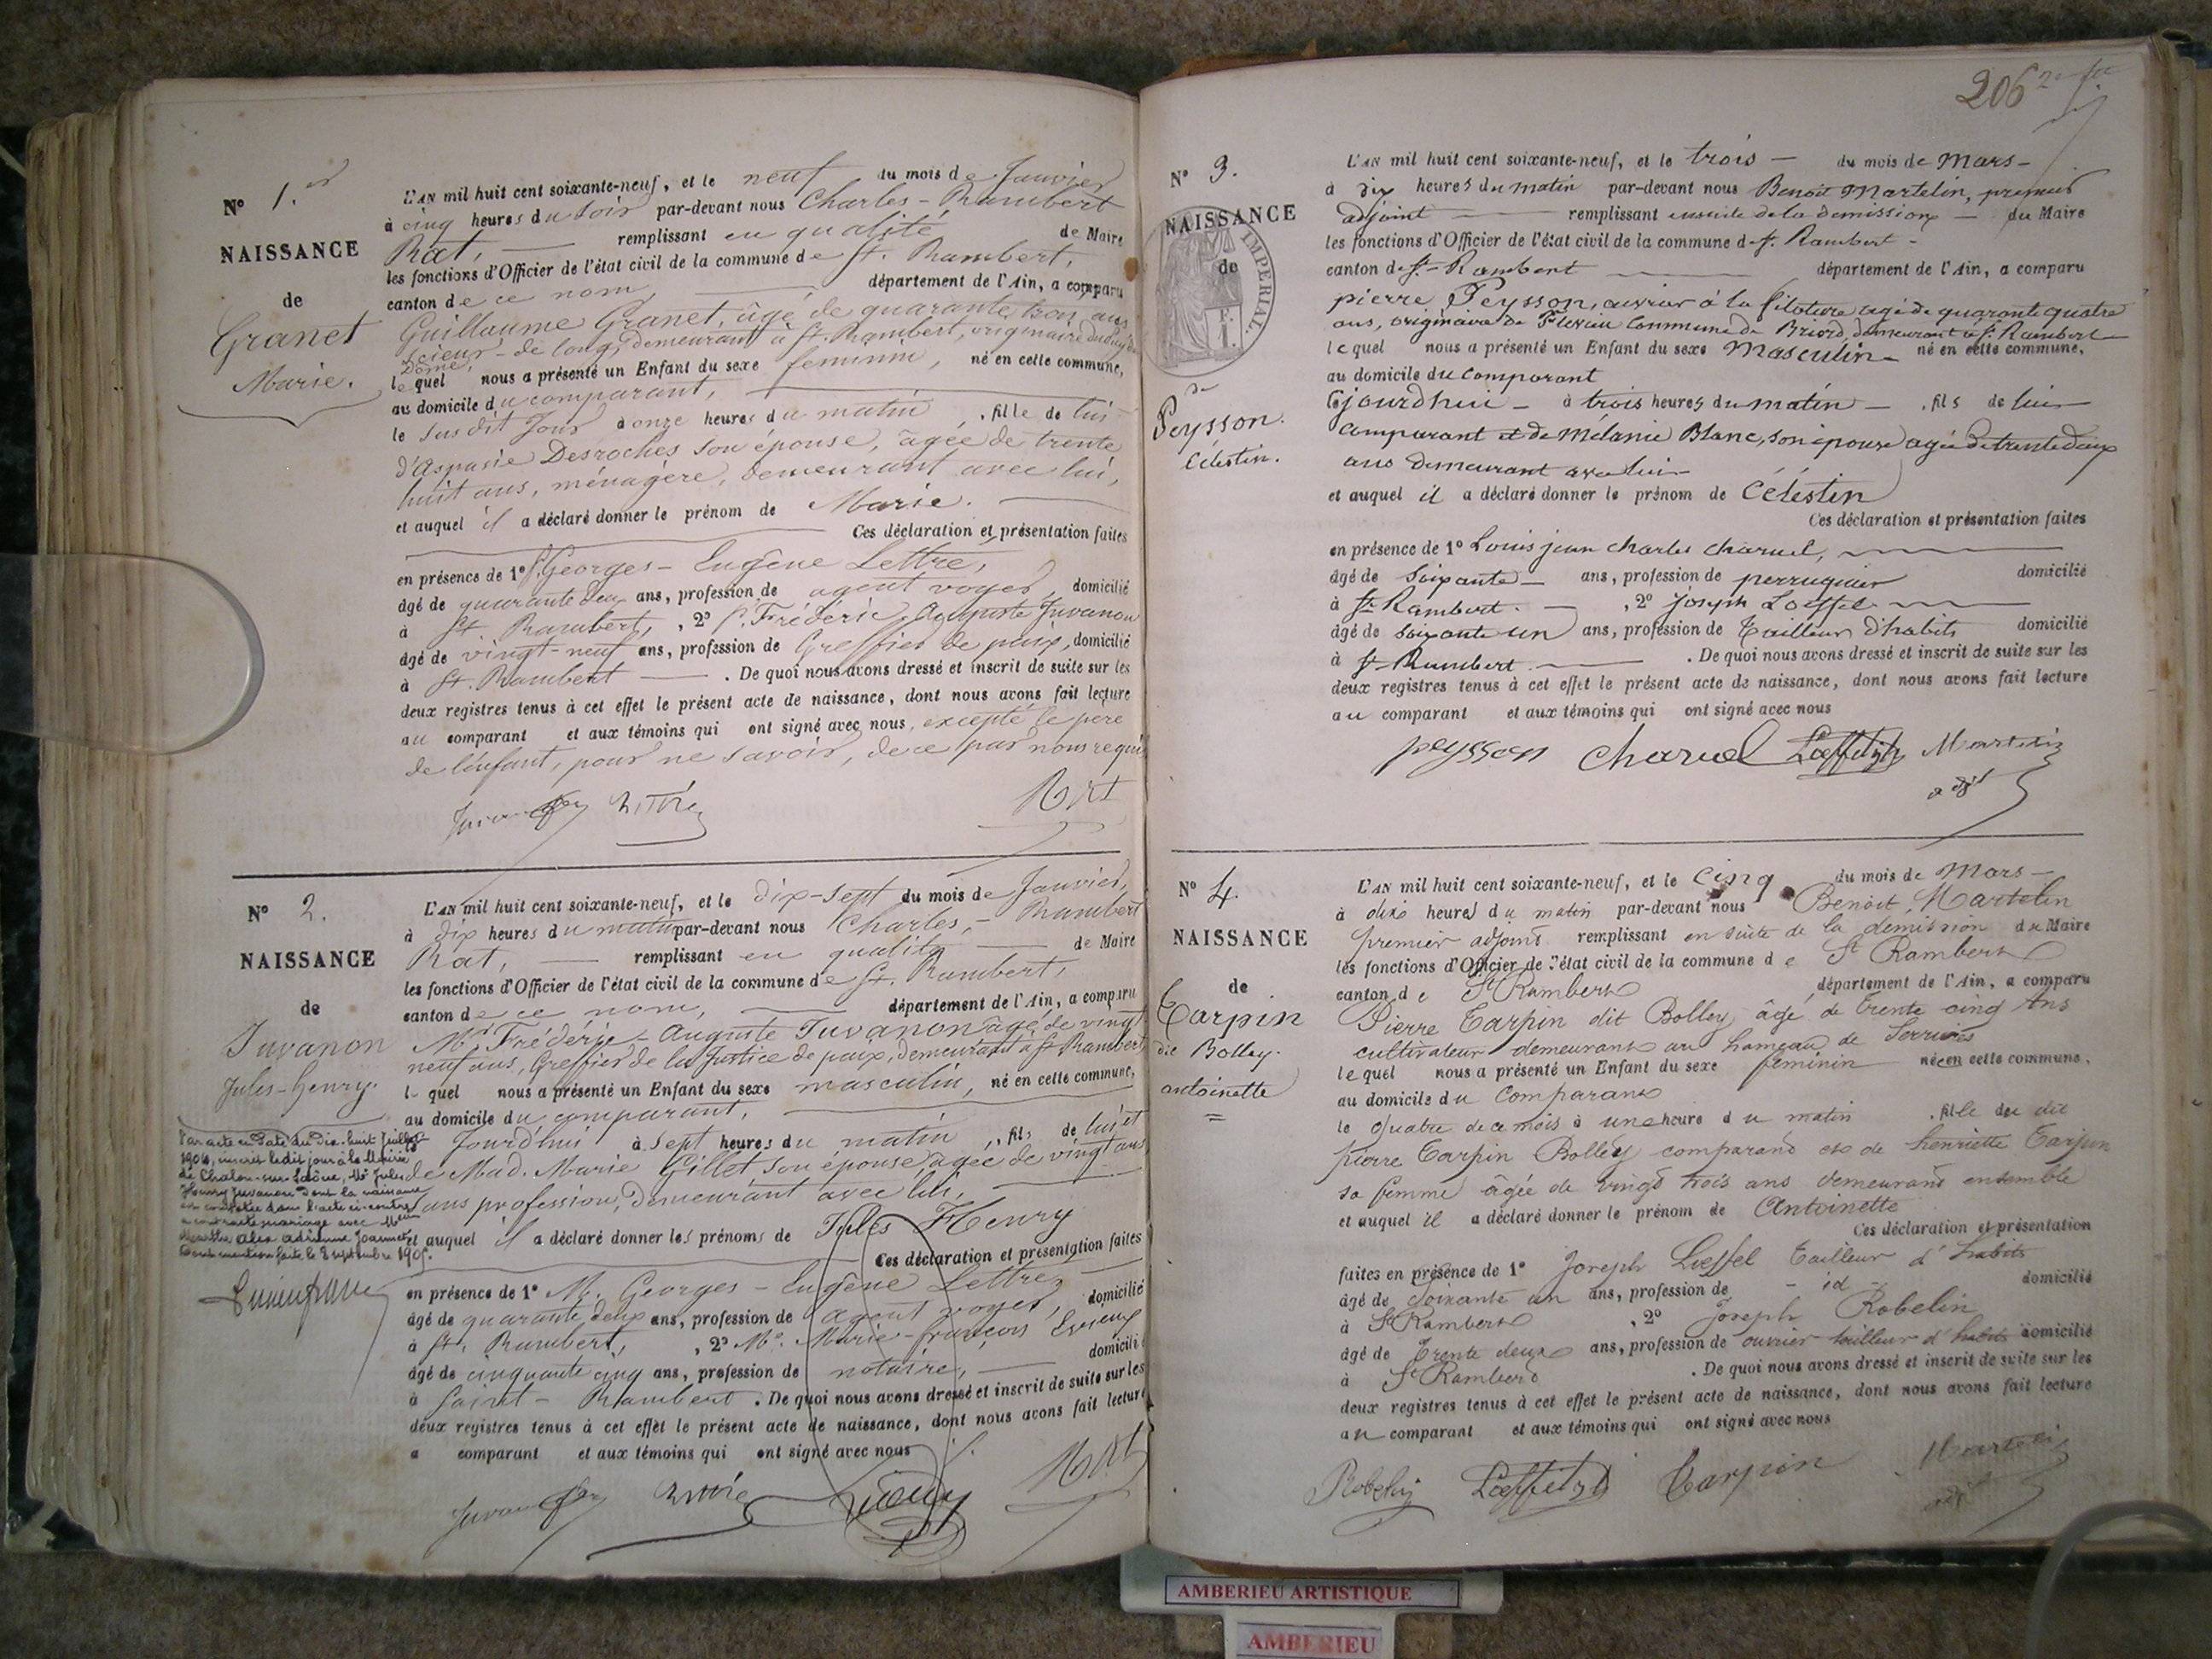 N° 1.er
NAISSANCE
de
Granet
Marie.
L'AN mil huit cent soixante-neuf, et le neuf du mois de Janvier
à cinq heures du soir par-devant nous Charles-Rambert
Rat, remplissant en qualité de Maire
les fonctions d'Officier de l'état civil de la commune de St. Rambert,
canton de ce nom, département de l'Ain, a comparu
Guillaume Granet, âgé de quarante trois ans
scieur-de long, demeurant à St. Rambert, originaire du Puy de
Dôme,
lequel nous a présenté un Enfant du sexe feminin, né en cette commune,
au domicile du comparant,
le susdit jour à onze heures du matin, fille de lui
d'Aspasie Desroches son épouse, âgée de trente
huit ans, ménagère, demeurant avec lui,
et auquel il a déclaré donner le prénom de Marie.
Ces déclaration et présentation faites
en présence de 1° S. Georges-Eugène Lettré,
âgé de quarante deux ans, profession de agent voyer, domicilié
à St. Rambert, 2° S. Frédéric Auguste Juvanon
âgé de vingt-neuf ans, profession de Greffier de paix, domicilié
à St. Rambert. De quoi nous avons dressé et inscrit de suite sur les
deux registres tenus à cet effet le présent acte de naissance, dont nous avons fait lecture
au comparant et aux témoins qui ont signé avec nous, excepté le père
de l'enfant, pour ne savoir, de ce par nous requis
Juvanon Lettré Rat
N° 2.
NAISSANCE
de
Juvanon
Jules-Henry.
Par acte en date du dix-huit Juillet
1904, inscrit ledit jour à la Mairie
de Chalon-sur-Saône, Mr Jules
Henry Juvanon dont la naissance
est constatée dans l'acte ci-contre
a contracté mariage avec Melle
Alex Adrienne Joannet
Dont mention faite le 2 septembre 190
L'AN mil huit cent soixante-neuf, et le dix-sept du mois de Janvier,
à dix heures du matin par-devant nous Charles-Rambert
Rat, remplissant en qualité de Maire
les fonctions d'Officier de l'état civil de la commune de St. Rambert,
canton de ce nom, département de l'Ain, a comparu
Mr. Frédéric-Auguste Juvanon âgé de vingt
neuf ans, Greffier de la Justice de paix, demeurant à St. Rambert
lequel nous a présenté un Enfant du sexe masculin, né en cette commune,
au domicile du comparant,
Jourd'hui à sept heures du matin, fils de lui et
de Mad. Marie Gillet son épouse, âgée de vingt ans
sans profession, demeurant avec lui,
et auquel il a déclaré donner les prénoms de Jules Henry
Ces déclaration et présentation faites
en présence de 1° M. Georges-Eugène Lettré,
âgé de quarante deux ans, profession de agent voyer, domicilié
à St. Rambert, 2° Me. Marie-françois
âgé de cinquante cinq ans, profession de notaire, domicilié
à Saint-Rambert. De quoi nous avons dressé et inscrit de suite sur les
deux registres tenus à cet effet le présent acte de naissance, dont nous avons fait lecture
a comparant et aux témoins qui ont signé avec nous
Juvanon Lettré Rat
206
N° 3.
NAISSANCE
de
IMPERIAL.
de
Peysson.
Célestin.
L'AN mil huit cent soixante-neuf, et le trois du mois de Mars
à dix heures du matin par-devant nous Benoit Martelin, premier
adjoint remplissant ensuite de la demission du Maire
les fonctions d'Officier de l'état civil de la commune de St. Rambert
canton de St-Rambert département de l'Ain, a comparu
pierre Peysson, ouvrier à la filature agé de quarante quatre
ans, originaire de Flevieu Commune de Briord, demeurant à St. Rambert
lequel nous a présenté un Enfant du sexe Masculin né en cette commune,
au domicile du comparant
Cejourdhui à trois heures du matin, fils de lui
comparant et de Mélanie Blanc, son épouse agée de trente deux
ans demeurant avec lui
et auquel il a déclaré donner le prénom de Célestin
Ces déclaration et présentation faites
en présence de 1° Louis jean charles charvel,
âgé de soixante ans, profession de perruquier domicilié
à St Rambert. , 2° Joseph Loeffel
âgé de soixante un ans, profession de Tailleur d'habits domicilié
à St Rambert. De quoi nous avons dressé et inscrit de suite sur les
deux registres tenus à cet effet le présent acte de naissance, dont nous avons fait lecture
au comparant et aux témoins qui ont signé avec nous
peysson charvel Martelin
adjt
N° 4.
NAISSANCE
de
Carpin
dit Bolley.
antoinette
L'AN mil huit cent soixante-neuf, et le Cinq du mois de Mars
à dix heures du matin par-devant nous Benoit Martelin
premier adjoint remplissant en suite de la demission du Maire
les fonctions d'Officier de l'état civil de la commune de St Rambert
canton de St Rambert département de l'Ain, a comparu
Pierre Carpin dit Bolley âgé de trente cinq Ans
cultivateur demeurant au hameau de Serrières
lequel nous a présenté un Enfant du sexe féminin née en cette commune,
au domicile du Comparant
le quatre de ce mois à une heure du matin. fille du dit
pierre Carpin Bolley comparant et de henriette Carpin
sa femme âgée de vingt trois ans demeurant ensemble
et auquel il a déclaré donner le prénom de Antoinette
Ces déclaration et présentation
faites en présence de 1° Joseph Loeffel Tailleur d'habits
âgé de Soixante un ans, profession de - id domicilié
à St Rambert, 2° Joseph Robelin
âgé de Trente deux ans, profession de ouvrier tailleur d'habits domicilié
à St Rambert. De quoi nous avons dressé et inscrit de suite sur les
deux registres tenus à cet effet le présent acte de naissance, dont nous avons fait lecture
au comparant et aux témoins qui ont signé avec nous
Robelin Carpin Martelin
adjt
AMBERIEU ARTISTIQUE
AMBERIEU